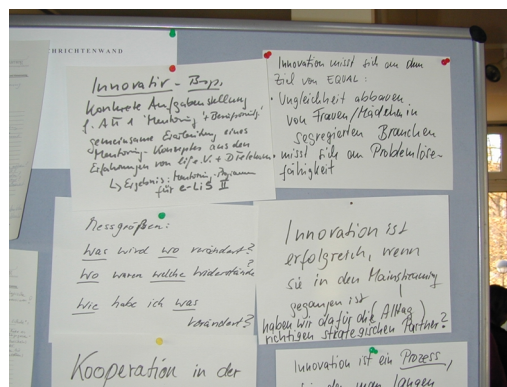 HRICHTENWAND
Innovativ - Bsp.
Konkrete Aufgabenstellung
f. AG 1 "Mentoring + Berufseinstieg"
gemeinsame Erarbeitung eines
Mentoring-Konzeptes aus den
Erfahrungen von life e.V. +
↳ Ergebnis: Mentoring-Programm
für e-LiS II
Innovation misst sich an dem
Ziel von EQUAL:
• Ungleichheit abbauen
von Frauen/Mädchen in
segregierten Branchen
• misst sich an Problemlöse-
fähigkeit
Messgrößen:
Was wird wo verändert?
Wo waren welche Widerstände
Wie habe ich was
verändert?
Innovation ist
erfolgreich, wenn
sie in den Mainstreaming
gegangen ist
haben wir dafür die
richtigen strategischen Partner?
Kooperation in der
Innovation ist ein Prozess,
man langen